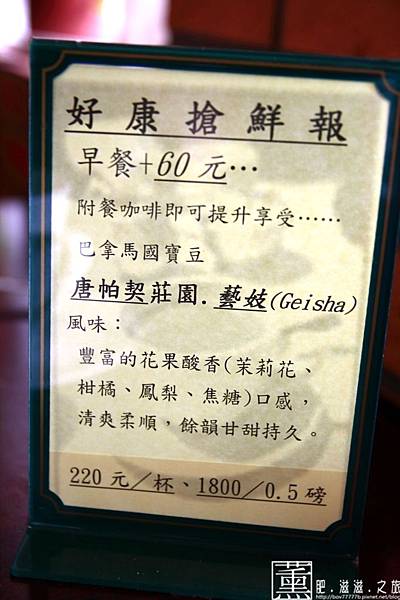 好康搶鮮報
早餐+60元…
附餐咖啡即可提升享受……
巴拿馬國寶豆
唐帕契莊園.藝妓(Geisha)
風味：
豐富的花果酸香(茉莉花、
柑橘、鳳梨、焦糖)口感，
清爽柔順，餘韻甘甜持久。
220元／杯、1800／0.5磅
薰 肥.滋滋.之旅